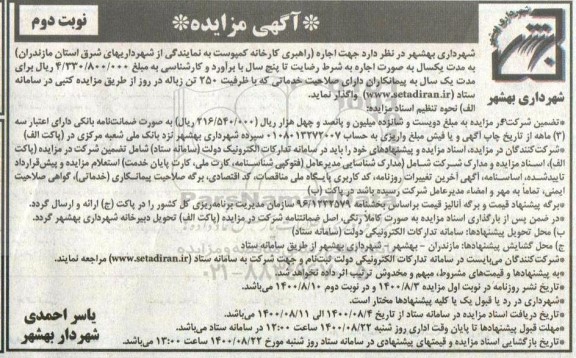 *آگهی مزایده*
نوبت دوم
شهرداری بهشهر
شهرداری بهشهر در نظر دارد جهت اجاره (راهبری کارخانه کمپوست به نمایندگی از شهرداریهای شرق استان مازندران)
به مدت یکسال به صورت اجاره به شرط رضایت تا پنچ سال با برآورد و کارشناسی به مبلغ ۴/۳۳۰/۸۰۰/۰۰۰ ریال برای
مدت یک سال به پیمانکاران دارای صلاحیت خدماتی که با ظرفیت ۲۵۰ تن زباله در روز از طریق مزایده کتبی در سامانه
ستاد (www.setadiran.ir) واگذار نماید.
الف) نحوه تنظیم اسناد مزایده:
•تضمین شرکت در مزایده به مبلغ دویست و شانزده میلیون و پانصد و چهل هزار ریال (۲۱۶/۵۴۰/۰۰۰ ریال) به صورت ضمانت‌نامه بانکی دارای اعتبار سه
(۳) ماهه از تاریخ چاپ آگهی و یا فیش مبلغ واریزی به حساب ۰۱۰۸۰۱۳۲۷۲۰۰۷ سپرده شهرداری بهشهر نزد بانک ملی شعبه مرکزی در (پاکت الف)
•شرکت‌کنندگان در مزایده، اسناد مزایده و پیشنهادهای خود را باید در سامانه تدارکات الکترونیک دولت (سامانه ستاد) شامل تضمین شرکت در مزایده (پاکت
الف)، اسناد مزایده و مدارک شرکت شامل (مدارک شناسایی مدیرعامل (فتوکپی شناسنامه، کارت ملی، کارت پایان خدمت) استعلام مزایده و پیش‌قرارداد
تاییدشده، اساسنامه، آگهی آخرین تغییرات روزنامه، کد کاربری پایگاه ملی مناقصات، کد اقتصادی، برگه صلاحیت پیمانکاری (خدماتی)، گواهی صلاحیت
ایمنی، تماما به مهر و امضاء مدیرعامل شرکت رسیده باشد در پاکت (ب)
•برگه پیشنهاد قیمت و برگه آنالیز قیمت براساس بخشنامه ۹۶/۱۲۳۲۵۷۹ سازمان مدیریت برنامه‌ریزی کل کشور را در پاکت (ج) ارائه و ارسال گردد.
•در ضمن پس از بارگذاری اسناد مزایده به صورت کاملا رنگی، اصل ضمانتنامه شرکت در مزایده (پاکت الف) تحویل دبیرخانه شهرداری بهشهر گردد.
ب) محل تحویل پیشنهادها: سامانه تدارکات الکترونیکی دولت (سامانه ستاد)
ج) محل گشایش پیشنهادها: مازندران - بهشهر - شهرداری بهشهر از طریق سامانه ستاد
•شرکت‌کنندگان می‌بایست در سامانه تدارکات الکترونیکی دولت ثبت‌نام و جهت شرکت به سامانه ستاد (www.setadiran.ir) مراجعه نمایند.
•به پیشنهادها و قیمت‌های مشروط، مبهم و مخدوش ترتیب اثر داده نخواهد شد.
•تاریخ نشر روزنامه در نوبت اول مزایده ۱۴۰۰/۸/۳ و در نوبت دوم ۱۴۰۰/۸/۱۰ می‌باشد.
•شهرداری در رد یا قبول یک یا کلیه پیشنهادها مختار است.
•تاریخ دریافت اسناد مزایده در سامانه ستاد از تاریخ ۱۴۰۰/۰۸/۴ الی ۱۴۰۰/۰۸/۱۱ می‌باشد.
•مهلت قبول پیشنهادها تا پایان وقت اداری روز شنبه ۱۴۰۰/۰۸/۲۲ ساعت ۱۲:۰۰ در سامانه ستاد می‌باشد.
•تاریخ بازگشایی اسناد مزایده و قیمتهای پیشنهادی در سامانه ستاد روز شنبه مورخ ۱۴۰۰/۰۸/۲۲ ساعت ۱۳:۰۰ می‌باشد.
یاسر احمدی
شهردار بهشهر